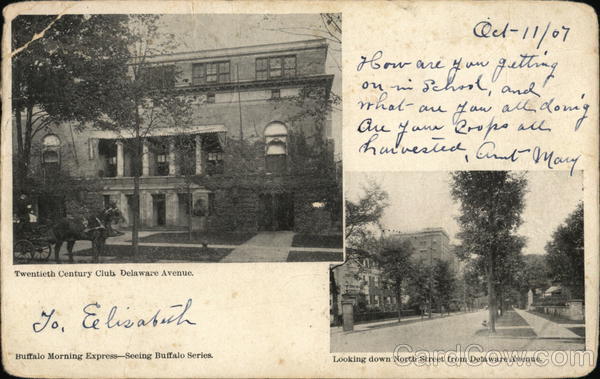 Oct-11/07
How are you getting
on in School, and
what are you all doing
Are your Crops all
harvested, Aunt Mary
Twentieth Century Club, Delaware Avenue.
To, Elisabath
Buffalo Morning Express—Seeing Buffalo Series.
Looking down North Street from Delaware Avenue.
CardCow.com